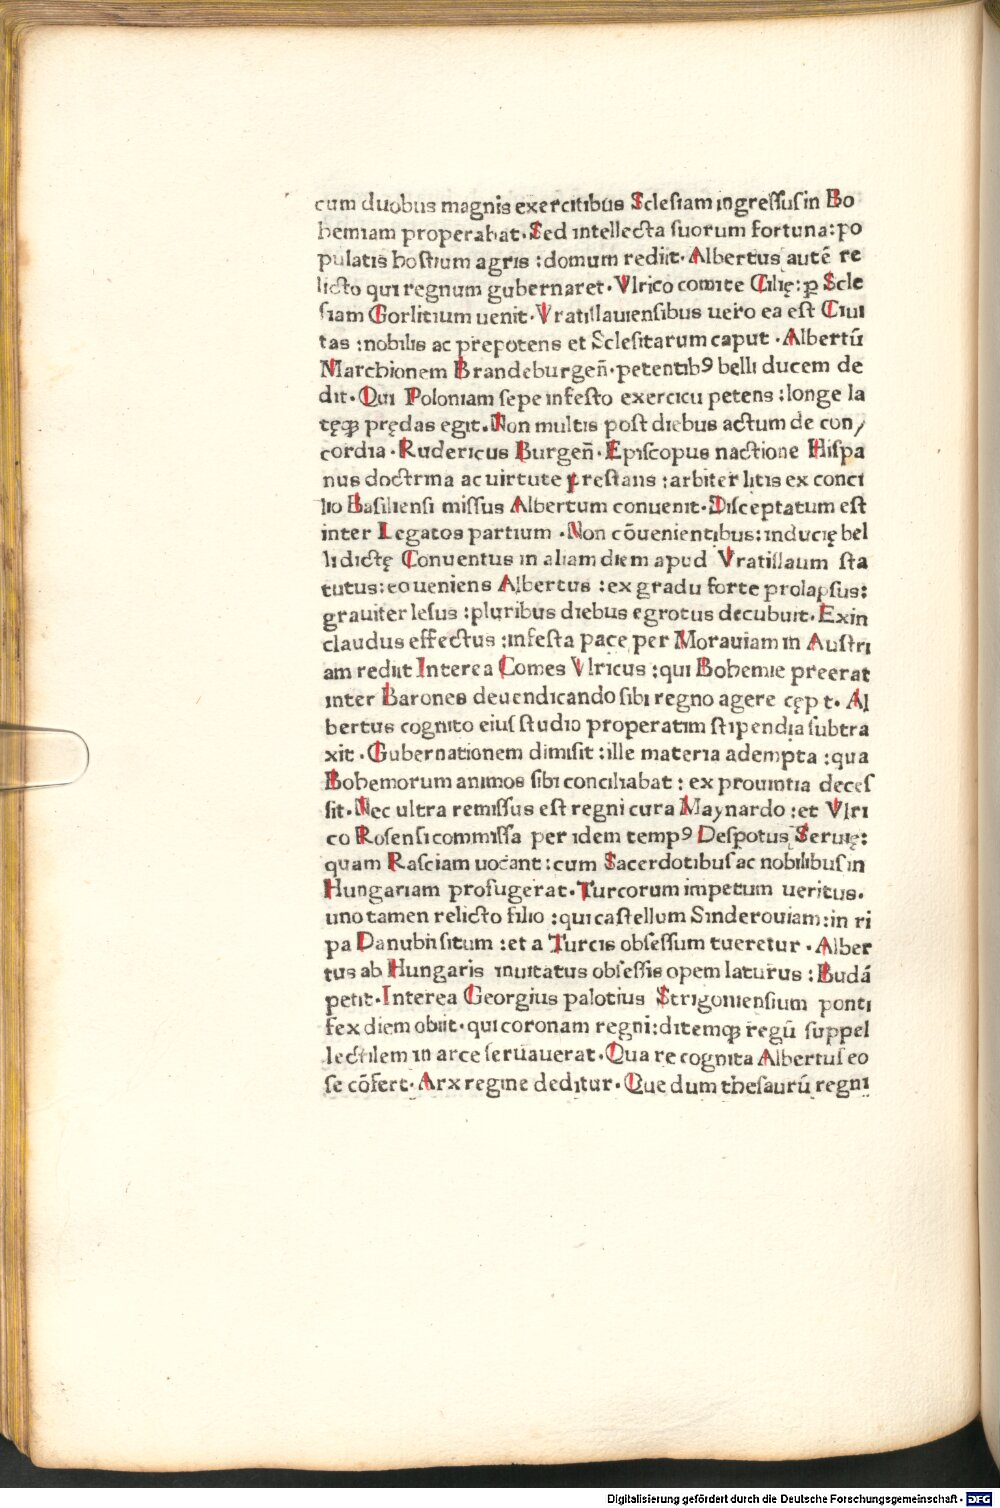 cum duobus magnis exercitibus Sclesiam ingressus in Bo
hemiam properabat. Sed intellecta suorum fortuna: po
pulatis hostium agris: domum rediit. Albertus autē re
licto qui regnum gubernaret. Vlrico comite Cilię: ꝑ Scle
siam Gorlitium uenit. Vratislauiensibus uero ea est Ciui
tas: nobilis ac prepotens et Sclesitarum caput. Albertū
Marchionem Brandeburgeñ. petentibꝰ belli ducem de
dit. Qui Poloniam sepe infesto exercitu petens: longe la
tęqꝫ prędas egit. Non multis post diebus actum de con/
cordia. Rudericus Burgeñ. Episcopus nactione Hispa
nus doctrina ac uirtute prestans: arbiter litis ex conci
lio Basiliensi missus Albertum conuenit. Disceptatum est
inter Legatos partium. Non cōuenientibus: inducię bel
li dictę Conuentus in aliam diem apud Vratislaum sta
tutus: eo ueniens Albertus: ex gradu forte prolapsus:
grauiter lesus: pluribus diebus egrotus decubuit. Exin
claudus effectus: infesta pace per Morauiam in Austri
am rediit Interea Comes Vlricus: qui Bohemie preerat
inter Barones deuendicando sibi regno agere cęp t. Al
bertus cognito eius studio properatim stipendia subtra
xit. Gubernationem dimisit: ille materia adempta: qua
Bohemorum animos sibi conciliabat: ex prouintia deces
sit. Nec ultra remissus est regni cura Maynardo: et Vlri
co Rosensi commissa per idem tempꝰ Despotus Seruię:
quam Rasciam uocant: cum Sacerdotibus ac nobilibus in
Hungariam profugerat. Turcorum impetum ueritus.
uno tamen relicto filio: qui castellum Sinderouiam: in ri
pa Danubii situm: et a Turcis obsessum tueretur. Alber
tus ab Hungaris inuitatus obsessis opem laturus: Budā
petit. Interea Georgius palotius Strigoniensium ponti
fex diem obiit. qui coronam regni: ditemqꝫ regū suppel
lectilem in arce seruauerat. Qua re cognita Albertus eo
se cōfert. Arx regine deditur. Que dum thesaurū regni
Digitalisierung gefördert durch die Deutsche Forschungsgemeinschaft - DFG